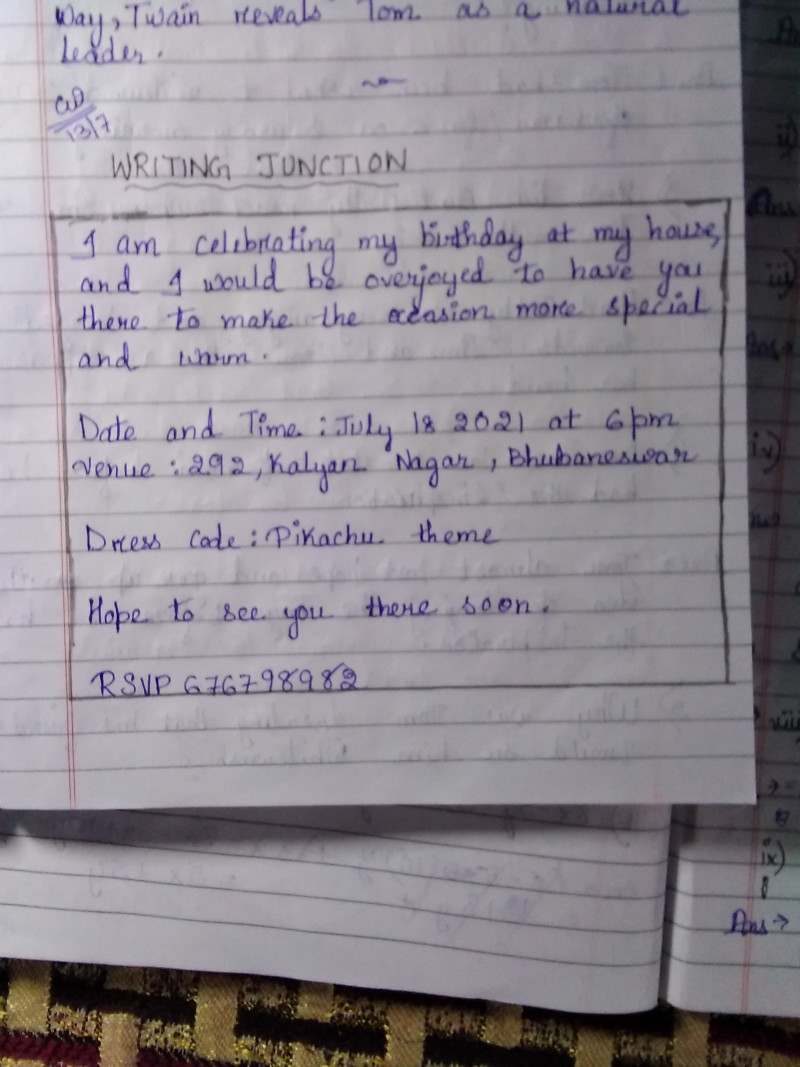 Way, Twain reveals Tom as a natural
leader.
13/7
WRITING JUNCTION
I am celebrating my birthday at my house,
and I would be overjoyed to have you
there to make the occasion more special
and warm.
Date and Time : July 18 2021 at 6pm
Venue : 292, Kalyan Nagar, Bhubaneswar
Dress code : Pikachu theme
Hope to see you there soon.
RSVP 676798982
ii)
Ans
iii)
Ans→
iv)
viii
ix)
Ans→